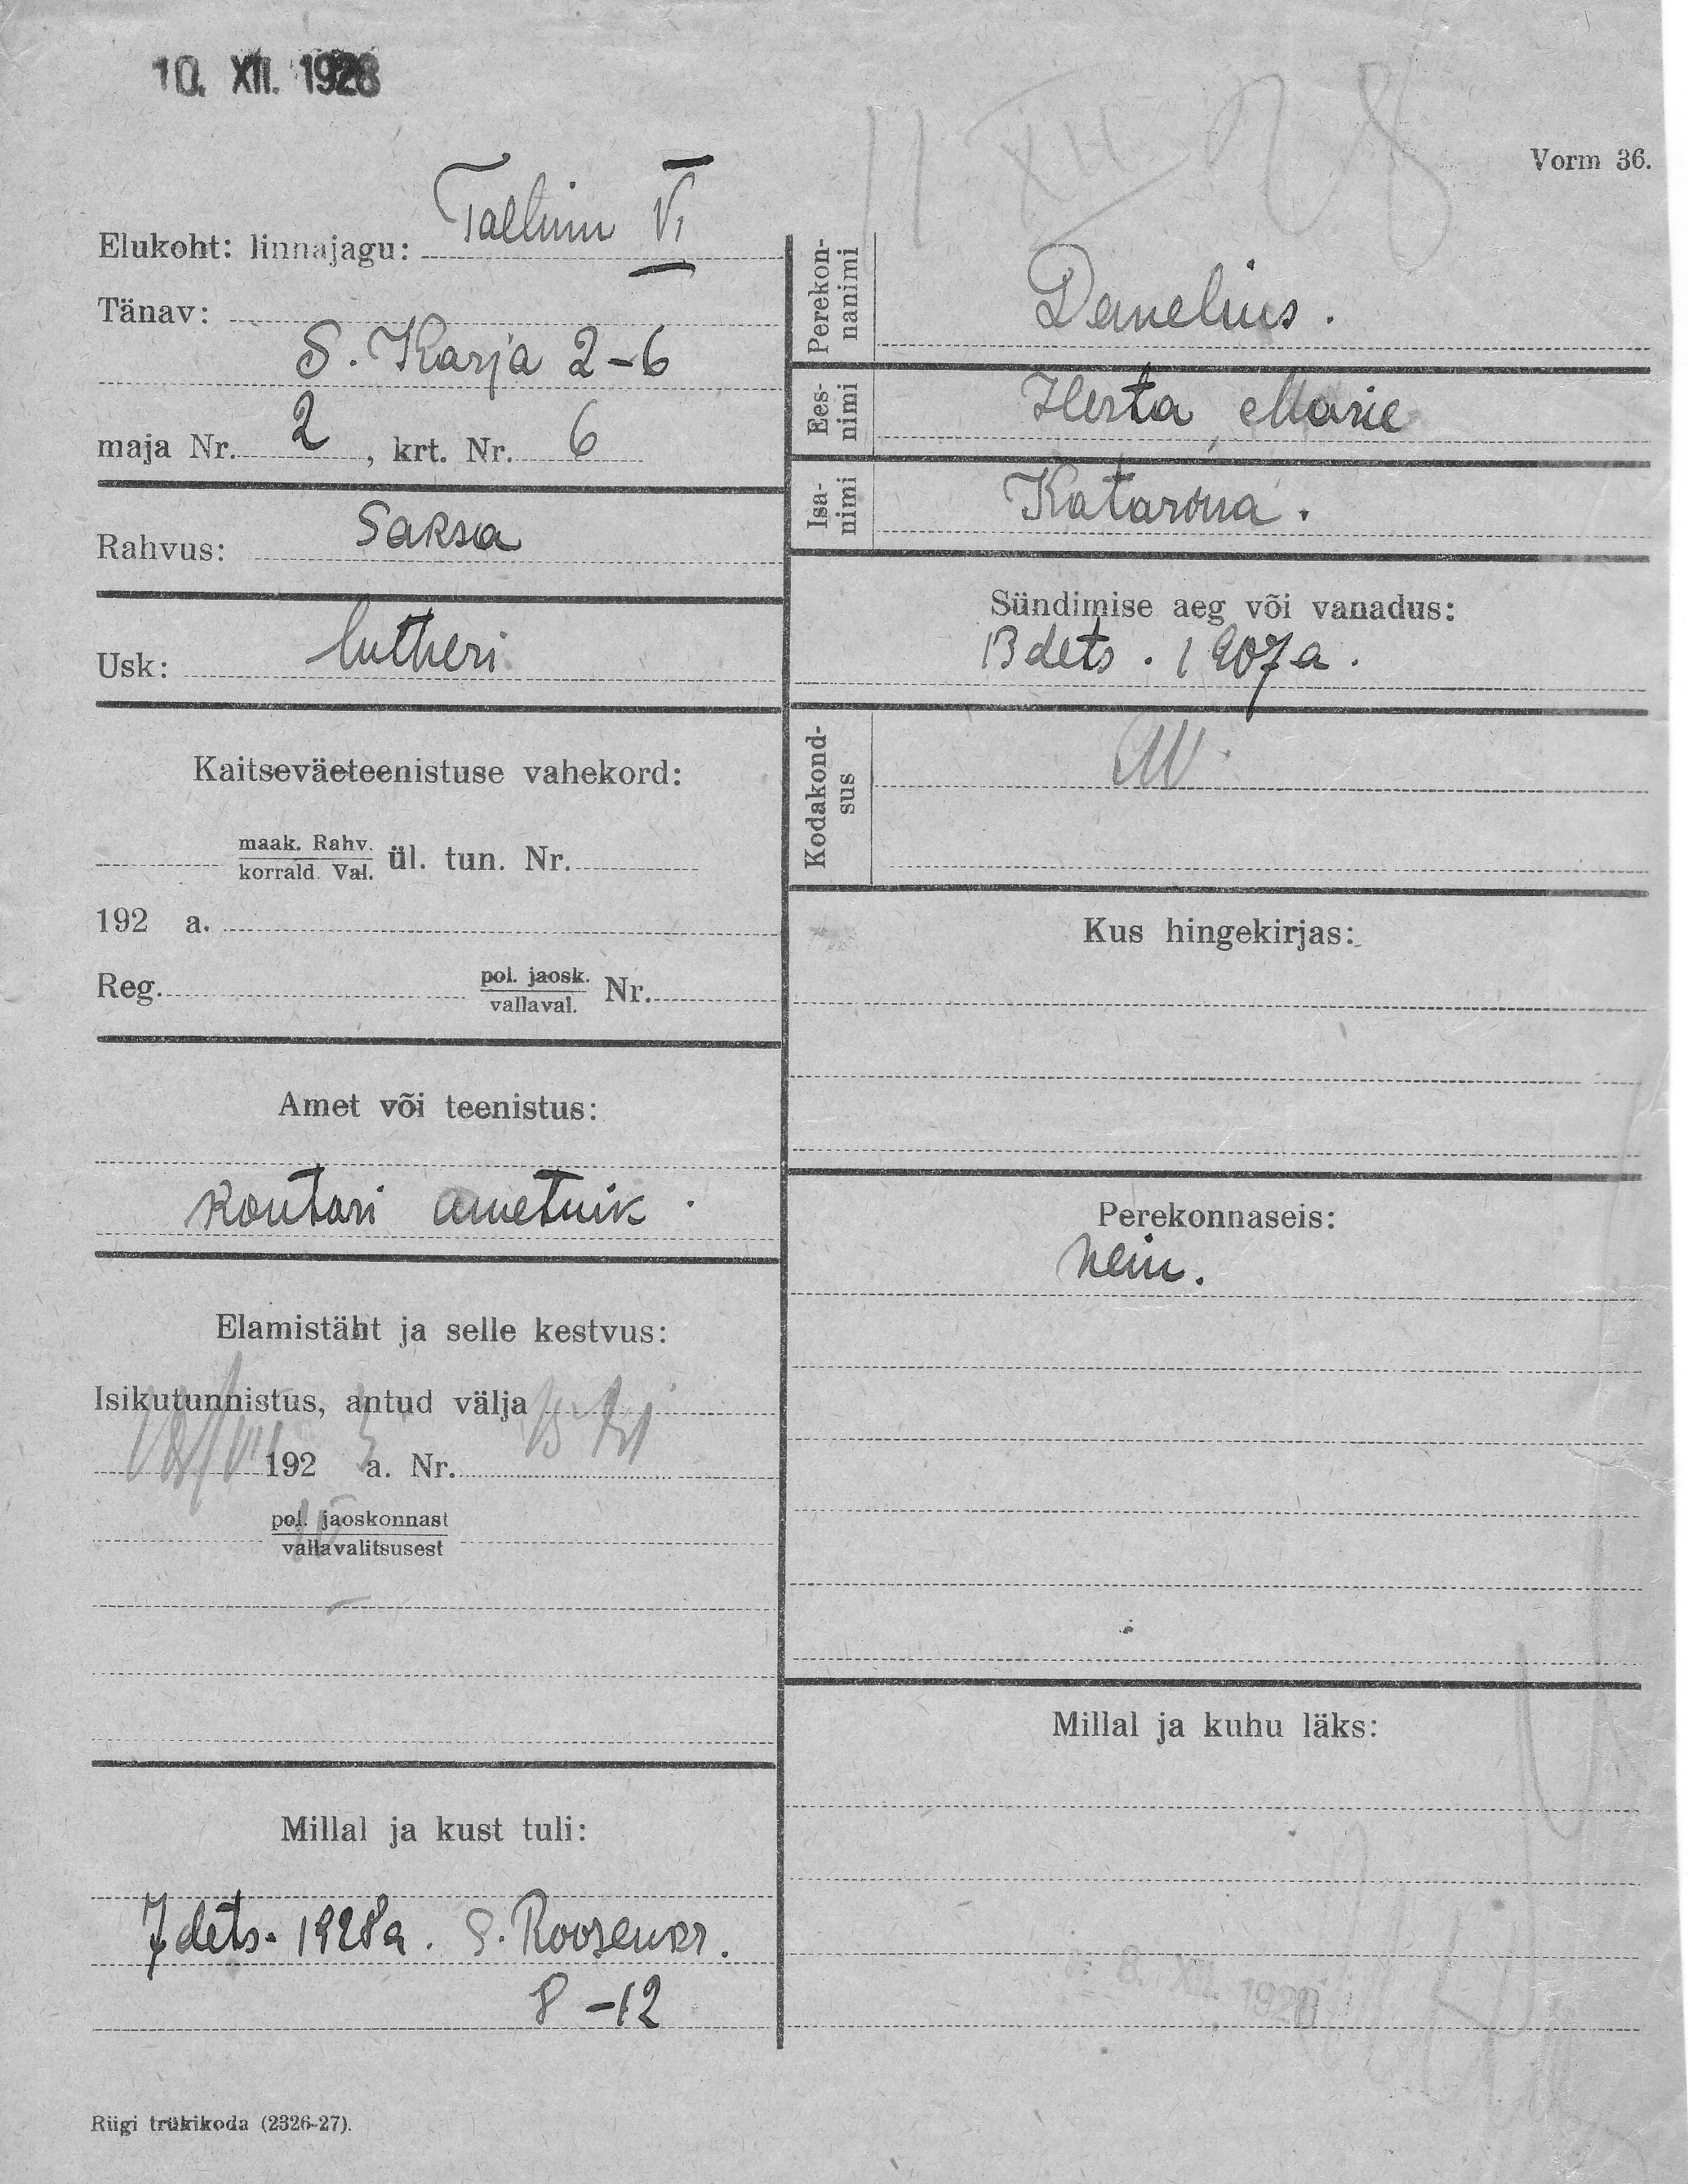 10. XII. 1928
11 XII 28
Vorm 36.
Elukoht: linnajagu: Tallinn VI
Tänav:
S. Karja 2-6
maja Nr. 2, krt. Nr. 6
Rahvus: Saksa
Usk: lutheri
Kaitseväeteenistuse vahekord:
maak. Rahv.
korrald. Val. ül. tun. Nr.
192 a.
Reg. pol. jaosk.
vallaval. Nr.
Amet või teenistus:
kontori ametnik.
Elamistäht ja selle kestvus:
Isikutunnistus, antud välja
192 a. Nr.
pol. jaoskonnast
vallavalitsusest
Millal ja kust tuli:
7 dets. 1928a. S. Roosenkr.
8-12
Riigi trükikoda (2326-27).
Perekon-
nanimi
Demelius.
Ees-
nimi
Herta, Marie
Isa-
nimi
Katarina.
Sündimise aeg või vanadus:
13 dets. 1907a.
Kodakond-
sus
Kus hingekirjas:
Perekonnaseis:
Neiu.
Millal ja kuhu läks:
8. XII. 1928